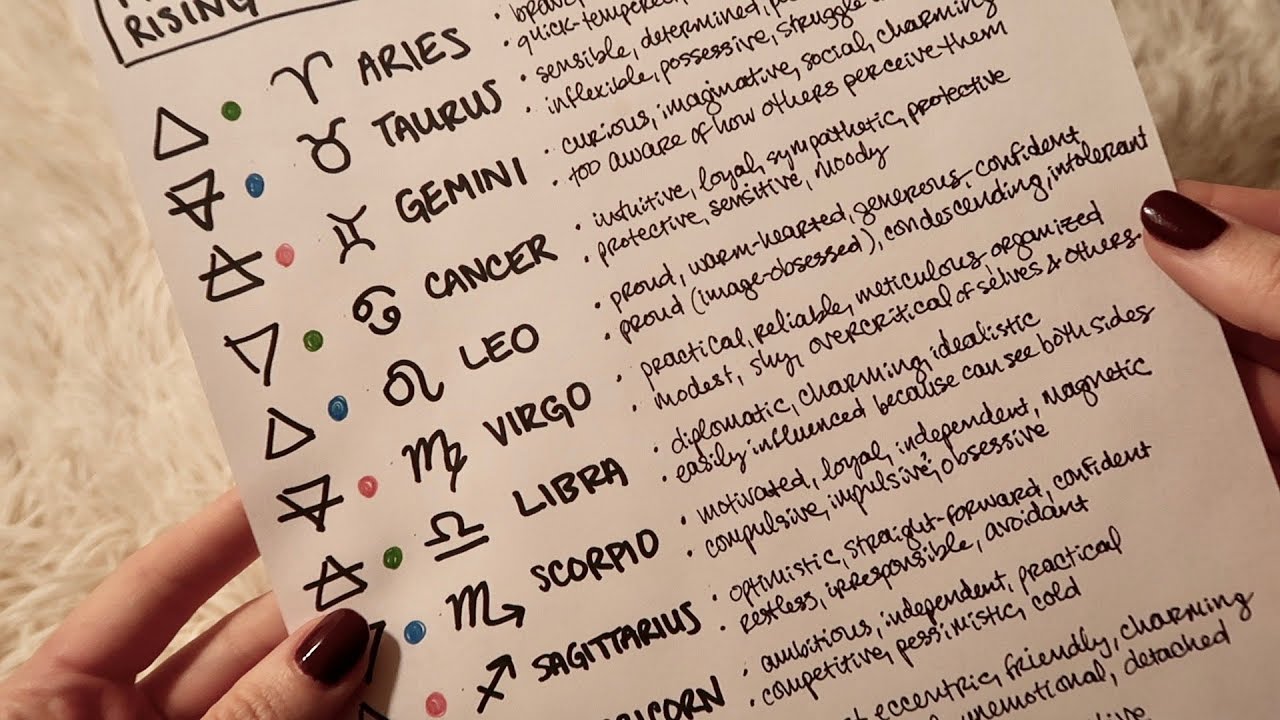 RISING
♈ ARIES
• quick-tempered,
♉ TAURUS
• sensible, determined,
• inflexible, possessive, struggle
♊ GEMINI
• curious, imaginative, social, charming
• too aware of how others perceive them
♋ CANCER
• intuitive, loyal, sympathetic, protective
• protective, sensitive, moody
♌ LEO
• proud, warm-hearted, generous, confident
• proud (image-obsessed), condescending, intolerant
♍ VIRGO
• practical, reliable, meticulous organized
• modest, shy, overcritical of selves & others
♎ LIBRA
• diplomatic, charming, idealistic
• easily influenced because can see both sides
♏ SCORPIO
• motivated, loyal, independent, magnetic
• compulsive, impulsive, obsessive
♐ SAGITTARIUS
• optimistic, straight-forward, confident
• restless, irresponsible, avoidant
RICORN
• ambitious, independent, practical
• competitive, pessimistic, cold
eccentric, friendly, charming
unemotional, detached